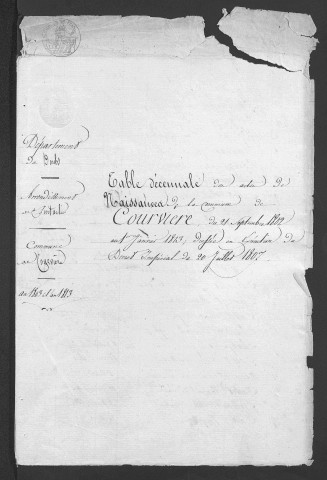 Département
du Doubs
Arrondissement
de Pontarlier
Commune
de Courviere
an 1803 à an 1813
Table décennale des actes de
Naissances de la commune de
Courviere du 21 Septembre 1802
au 1er Janvier 1813, dressée en Exécution du
Décret Impérial du 20 Juillet 1807.